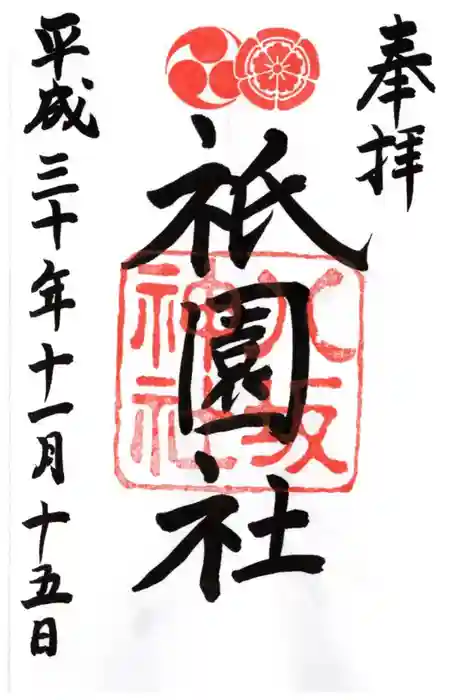 奉拝
祇園社
八坂
神社
平成三十年十一月十五日